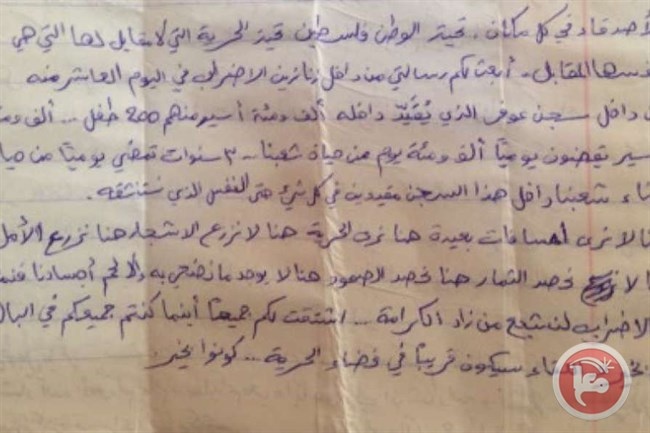 الأصدقاء في كل مكان، تحية الوطن فلسطين تحية الحرية التي لا مقابل لها التي هي
نفسها المقابل. أبعث لكم رسالتي من داخل زنازين الاضراب في اليوم العاشر منه
من داخل سجن عوفر الذي يُقيّد داخله ألف ومئة أسير منهم 200 طفل... ألف ومئة
أسير يقضون يوميًا ألف ومئة يوم من حياة شعبنا... ٣ سنوات تمضي يوميًا من حياة
أبناء شعبنا داخل هذا السجن مقيدين في كل شيء حتى النفس الذي نستنشقه.
هنا لا نرى مسافات بعيدة هنا نرى الحرية هنا لا نزرع الاشجار هنا نزرع الأمل
هنا لا نحصد الثمار هنا نحصد الصمود هنا لا يوجد ما نضحي به إلا لحم أجسادنا
الاضراب لنشبع من زاد الكرامة... اشتقت لكم جميعًا أينما كنتم جميعكم في البال
سيكون قريبًا في فضاء الحرية... كونوا بخير